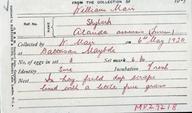 FROM THE COLLECTION OF
William Mair
Ref. No.
Skylark
Alauda arvensis (Linn)
Collected by W. Mair on 6th May 1920
At Maybole
No. of eggs in set 3 Set mark 6/3
Identity Sure Incubation Fresh
Nest In hay field deep scrape
lined with a little fine grass